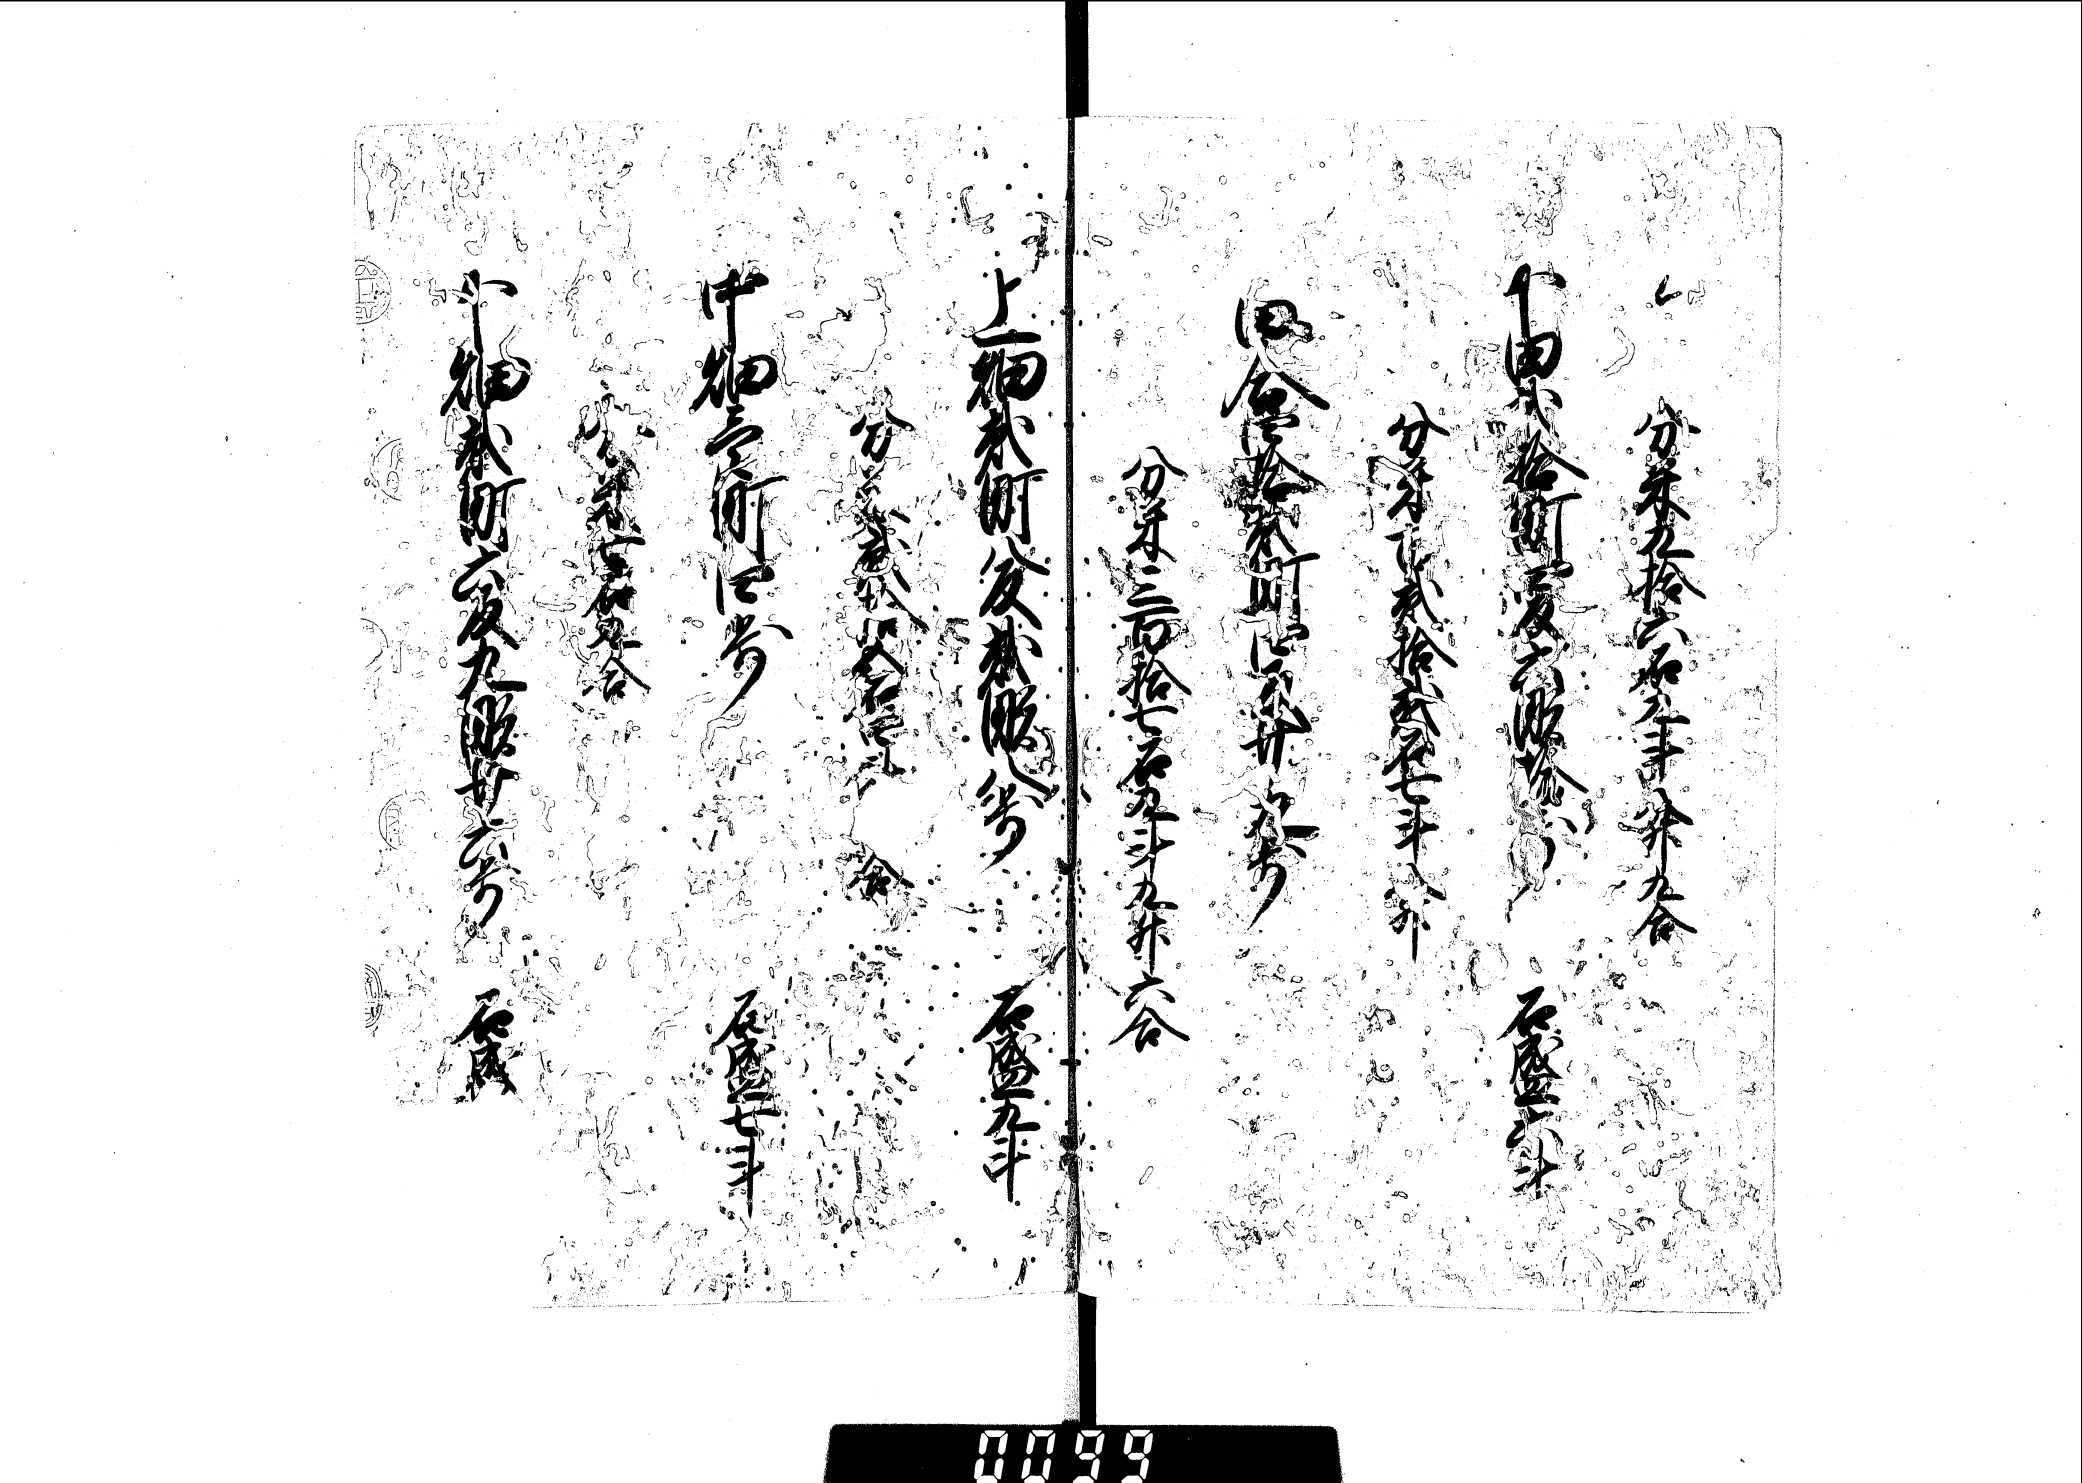 分米九拾六石六斗八升九合
下田弐拾町四反六畝拾歩 石盛六斗
分米百弐拾弐石七斗八升
田合四拾弐町四反廿九歩
分米三百拾七石九斗九升六合
上畑弐町八反弐畝八歩 石盛九斗
分米弐拾五石四斗 合
中畑三町四歩 石盛七斗
分米 合
下畑弐町六反九畝廿六歩 石盛
0099